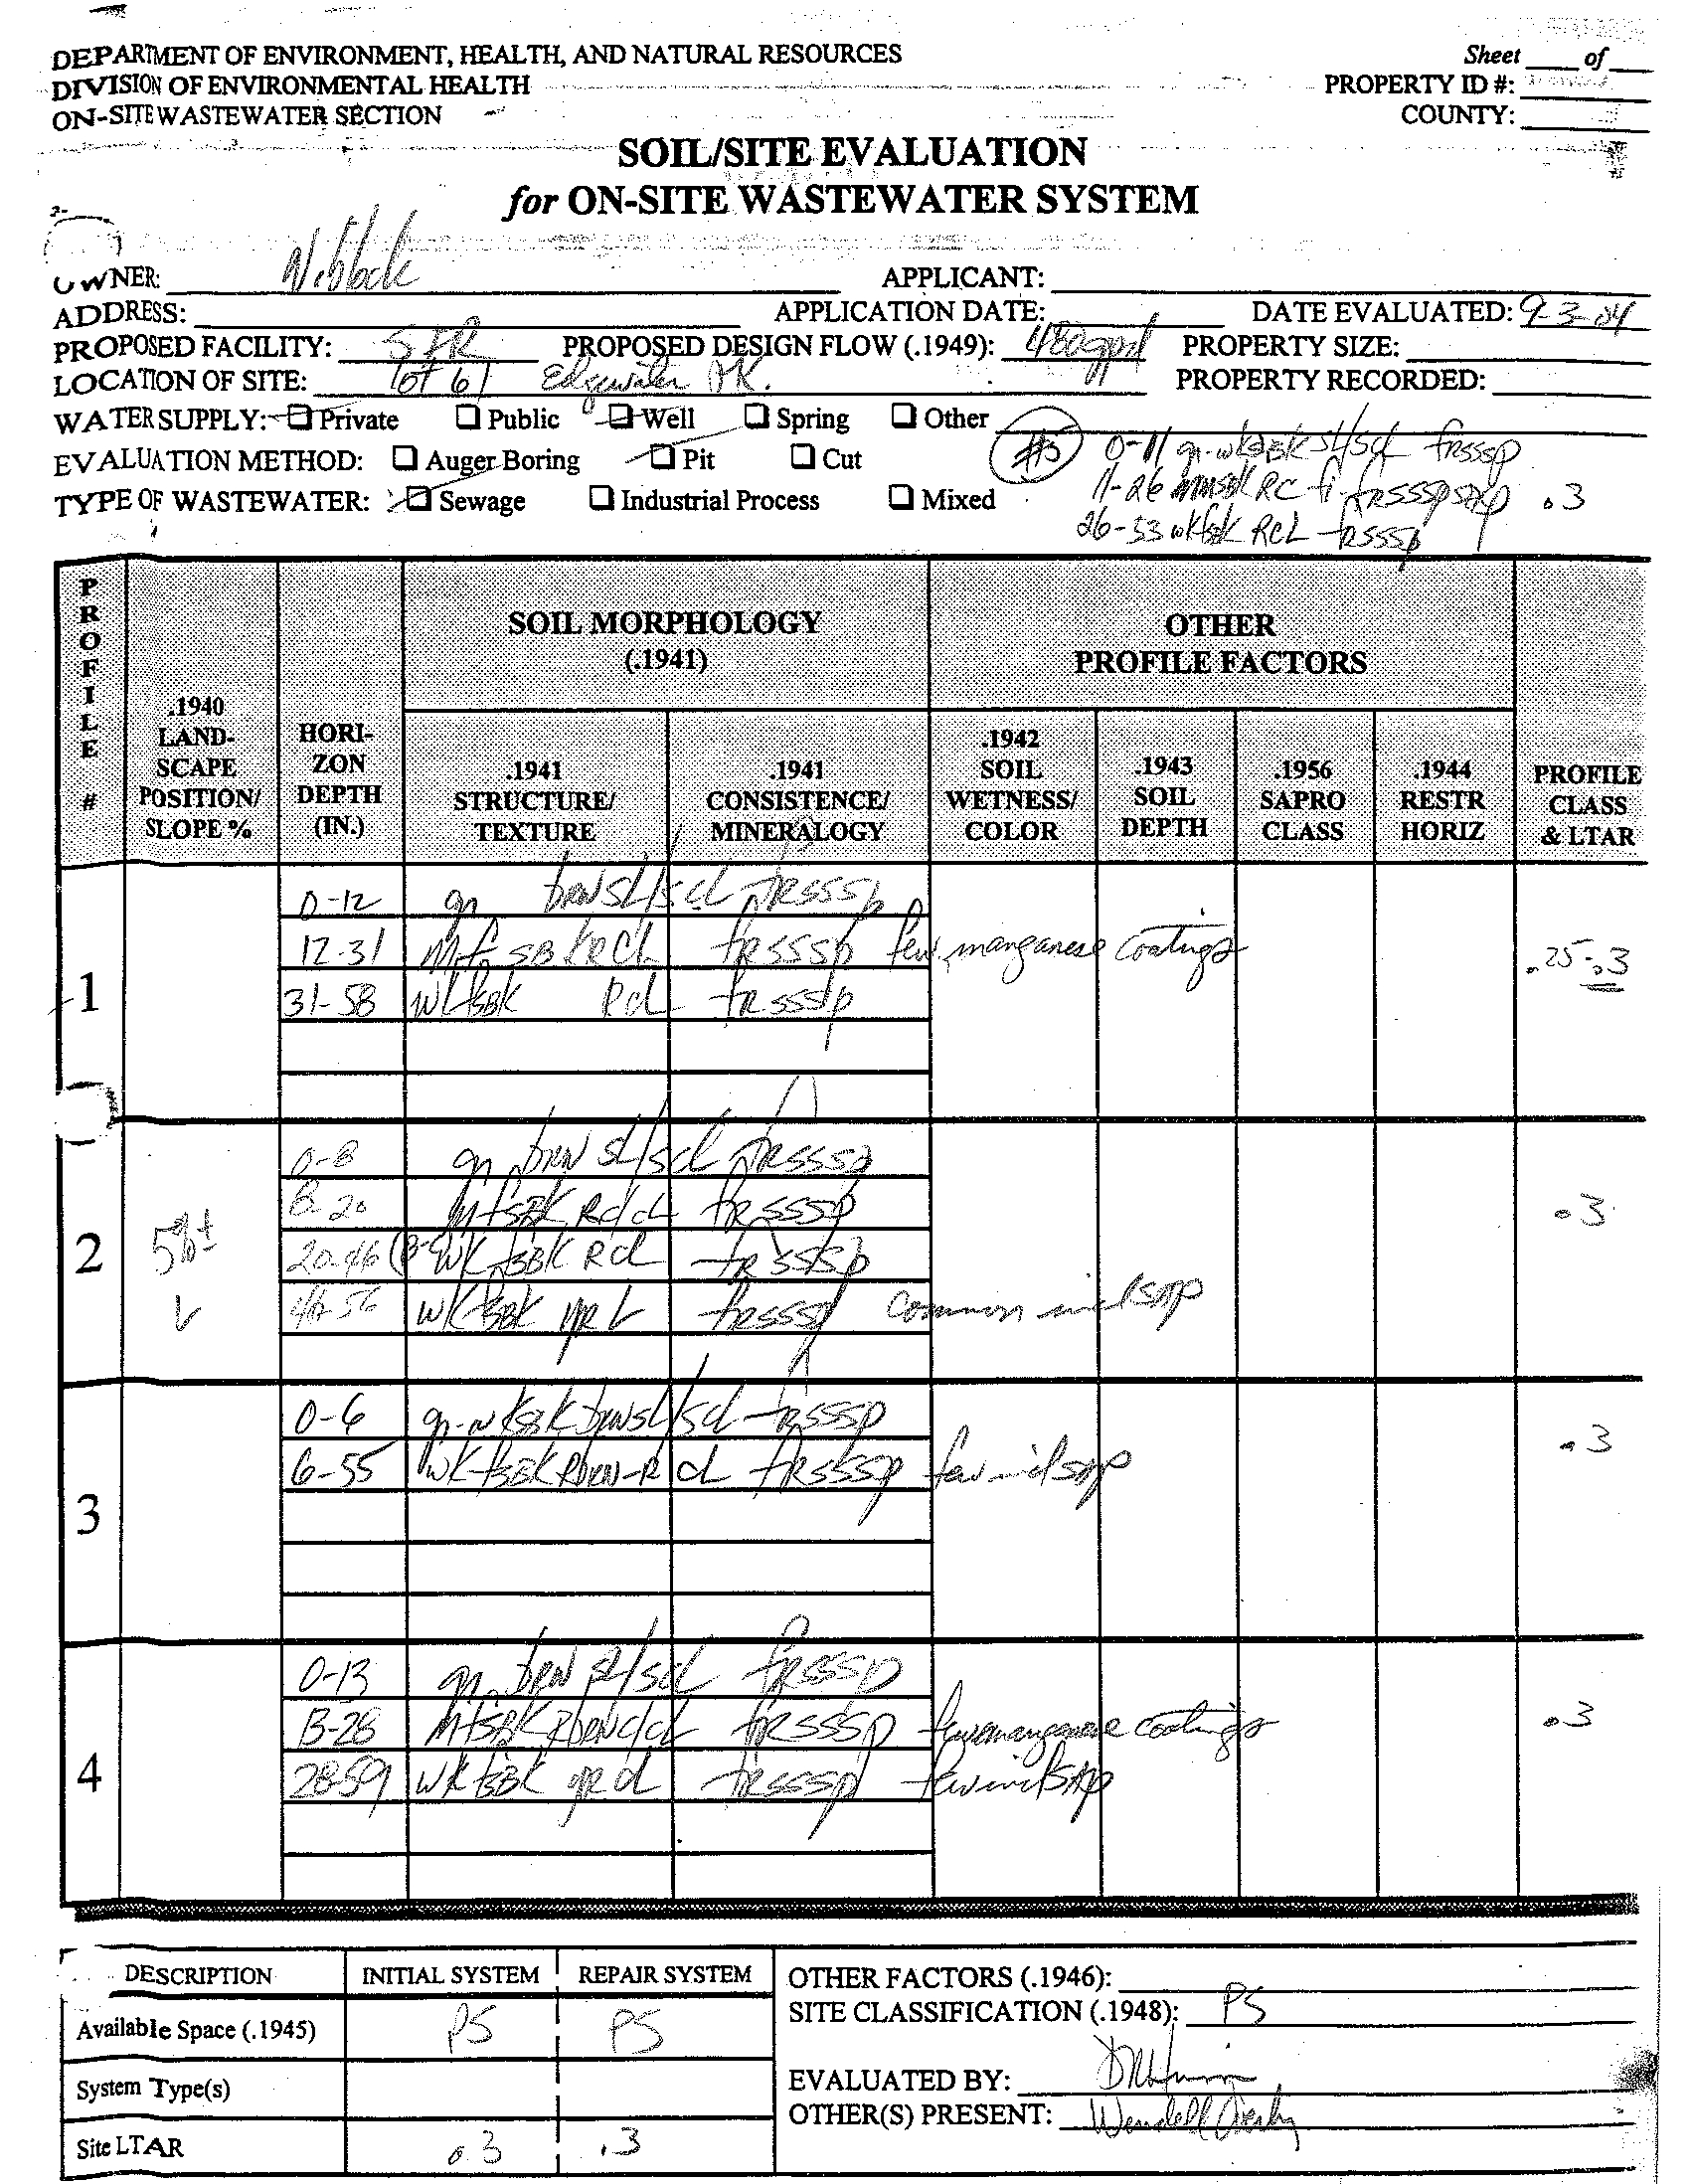 DEPARTMENT OF ENVIRONMENT, HEALTH, AND NATURAL RESOURCES
DIVISION OF ENVIRONMENTAL HEALTH
ON-SITE WASTEWATER SECTION
Sheet ____ of ____
PROPERTY ID #:
COUNTY:
SOIL/SITE EVALUATION
for ON-SITE WASTEWATER SYSTEM
OWNER:
APPLICANT:
ADDRESS:
APPLICATION DATE:
DATE EVALUATED: 9-3-04
PROPOSED FACILITY: SFR
PROPOSED DESIGN FLOW (.1949): 480gpd
PROPERTY SIZE:
LOCATION OF SITE: lot 61 Edgewater PK.
PROPERTY RECORDED:
WATER SUPPLY: ☐ Private ☐ Public ☐ Well ☐ Spring ☐ Other
EVALUATION METHOD: ☐ Auger Boring ☐ Pit ☐ Cut
TYPE OF WASTEWATER: ☐ Sewage ☐ Industrial Process ☐ Mixed
#5 0-11 gr-wksBK SL/SCL frsssp
11-26 RC fi-frsssp SAP .3
26-53 wkfsbk RCL frsssp
PROFILE #
.1940 LAND-SCAPE POSITION/ SLOPE %
HORI-ZON DEPTH (IN.)
SOIL MORPHOLOGY
(.1941)
OTHER
PROFILE FACTORS
.1941 STRUCTURE/ TEXTURE
.1941 CONSISTENCE/ MINERALOGY
.1942 SOIL WETNESS/ COLOR
.1943 SOIL DEPTH
.1956 SAPRO CLASS
.1944 RESTR HORIZ
PROFILE CLASS & LTAR
1
0-12 gr brn SL/SCL frsssp
12-31 mfSBK RCL frsssp few manganese coatings .25-.3
31-58 wkfsBK RCL frsssp
2 5%± L
0-8 gr brn SL/SCL frsssp
8-20 mfsBK RC/CL frsssp .3
20-46 (B-C) wkfsBK RCL frsssp
46-56 wkfsBK YR L frsssp common micl SAP
3
0-6 gr-wksBK brn SL/SCL frsssp
6-55 wkfsBK Rbrn-R CL frsssp few micl SAP .3
4
0-13 gr brn SL/SCL frsssp
13-28 mfsBK Rbrn C/CL frsssp few manganese coatings .3
28-59 wkfsBK YR CL frsssp few micl SAP
DESCRIPTION INITIAL SYSTEM REPAIR SYSTEM
Available Space (.1945) PS PS
System Type(s)
Site LTAR .3 .3
OTHER FACTORS (.1946):
SITE CLASSIFICATION (.1948): PS
EVALUATED BY:
OTHER(S) PRESENT: Wendell Overby